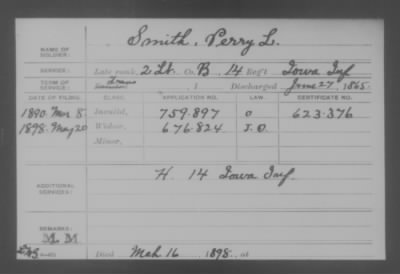 NAME OF SOLDIER: Smith, Perry L.
SERVICE: Late rank, 2 Lt Co. B, 14 Reg't Iowa Inf
TERM OF SERVICE: , 1 Discharged June 27, 1865
DATE OF FILING. CLASS. APPLICATION NO. LAW. CERTIFICATE NO.
1890 Mar 8 Invalid, 759.897 O 623.376
1898. May 20 Widow, 676.824 J.O.
Minor,
ADDITIONAL SERVICES: H. 14 Iowa Inf
REMARKS:
M. M
Died Mch 16 1898, at